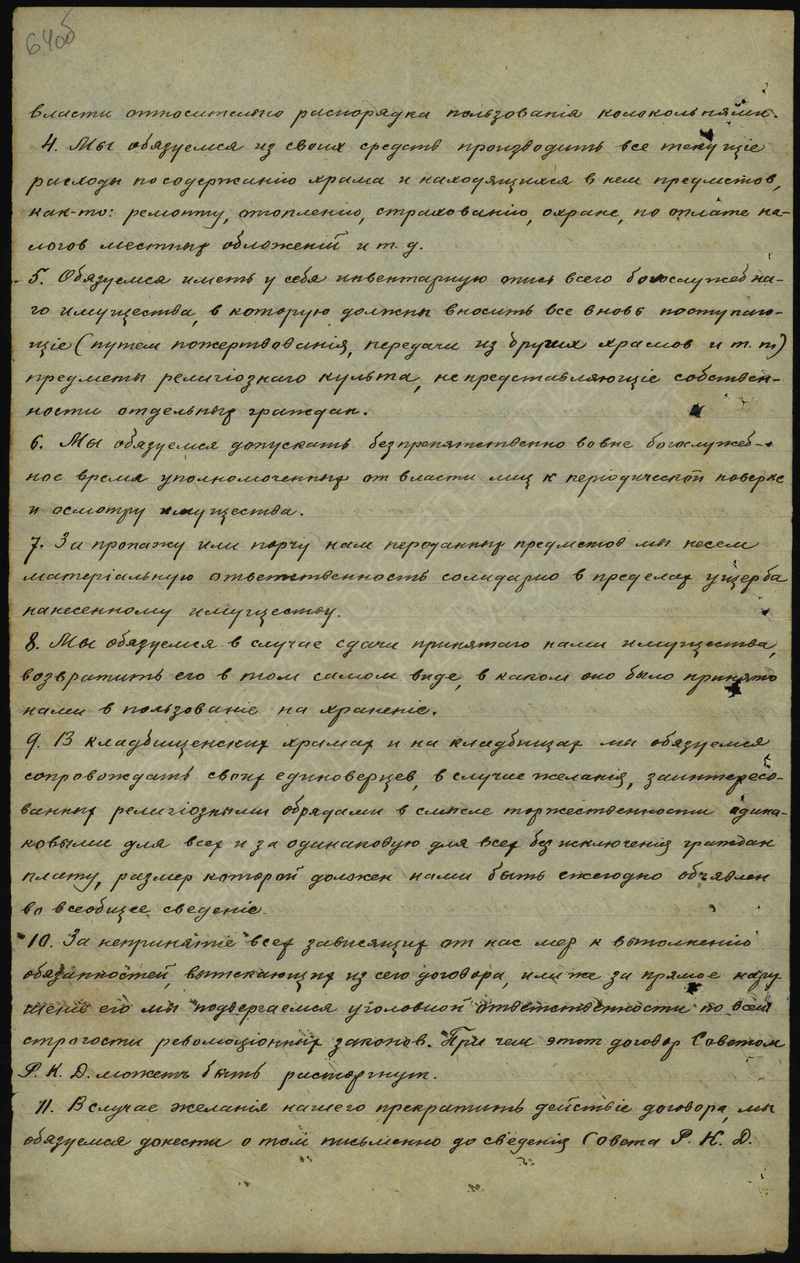 64об
власти относительно распорядка пользованія колокольнями.
4. Мы обязуемся из своих средств производить все текущіе
расходы по содержанію храма и находящихся в нем предметов,
как-то: ремонту, отопленію, страхованію, охране, по оплате на-
логов местных обложеній и т. д.
5. Обязуемся иметь у себя инвентарную опись всего богослужебна-
го имущества, в которую должны вносить все вновь поступаю-
щіе (путем пожертвованія, передачи из других храмов и т. п)
предметы религіознаго культа, не представляющіе собствен-
ности отдельных граждан.
6. Мы обязуемся допускать безпрепятственно во вне богослужеб-
ное время уполномоченных от власти лиц к періодической поверке
и осмотру имущества.
7. За пропажу или порчу нам переданных предметов мы несем
матеріальную ответственность солидарно в пределах ущерба
нанесенному имуществу.
8. Мы обязуемся в случае сдачи принятаго нами имущества,
возвратить его в том самом виде, в каком оно было принято
нами в пользованіе на храненіе.
9. В кладбищенских храмах и на кладбищах мы обязуемся
сопровождать своих единоверцев, в случае желанія, заинтересо-
ванных религіозными обрядами в смысле торжественности одина-
ковыми для всех и за одинаковую для всех без исключенія граждан
плату, размер которой должен нами быть ежегодно объявлен
во всеобщее сведеніе.
10. За непринятіе всех зависящих от нас мер к выполненію
обязанностей, вытекающих из сего договора, или же за прямое нару
шеніе его мы подвергаемся уголовной ответственности по всей
строгости революціонных законов. При чем этот договор Советом
Р. К. Д. может быть расторгнут.
11. В случае желанія нашего прекратить действіе договора, мы
обязуемся донести о том письменно до сведенія Совета Р. К. Д.